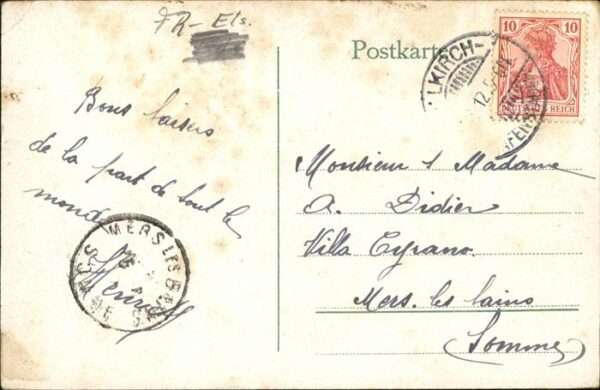 FR - Els.
Postkarte
10 10
DEUTSCHES REICH
LKIRCH-
12.
Bons baisers
de la part de tout le
monde
MERS LES BAINS
SOMME
Monsieur & Madame
A. Didier
Villa Cyrano.
Mers. les bains
(Somme)